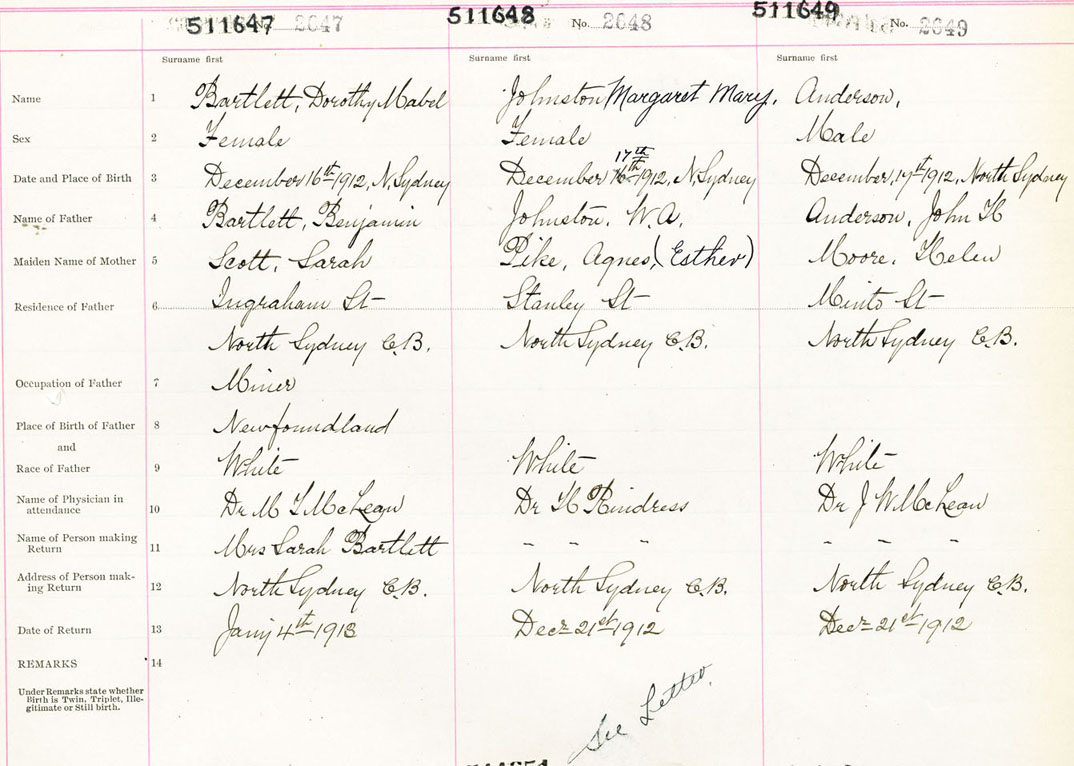 511647 No. 2647 511648 No. 2648 511649 No. 2649
Surname first Surname first Surname first
Name 1 Bartlett, Dorothy Mabel Johnston Margaret Mary. Anderson,
Sex 2 Female Female Male
17th
Date and Place of Birth 3 December 16th 1912, N, Sydney December 16th 1912, N, Sydney December, 17th 1912, North Sydney
Name of Father 4 Bartlett, Benjamin Johnston, W. A. Anderson, John H
Maiden Name of Mother 5 Scott, Sarah Pike, Agnes, (Esther) Moore, Helen
Residence of Father 6 Ingraham St Stanley St Minto St
North Sydney C.B. North Sydney C.B. North Sydney C.B.
Occupation of Father 7 Miner
Place of Birth of Father 8 Newfoundland
and
Race of Father 9 White White White
Name of Physician in
attendance 10 Dr M T McLean Dr H Rindress Dr J W McLean
Name of Person making
Return 11 Mrs Sarah Bartlett - - - - - -
Address of Person mak-
ing Return 12 North Sydney C.B. North Sydney C.B. North Sydney C.B.
Date of Return 13 Jany 4th 1913 Decr 21st 1912 Decr 21st 1912
REMARKS 14
Under Remarks state whether
Birth is Twin, Triplet, Ille-
gitimate or Still birth.
See Letter.